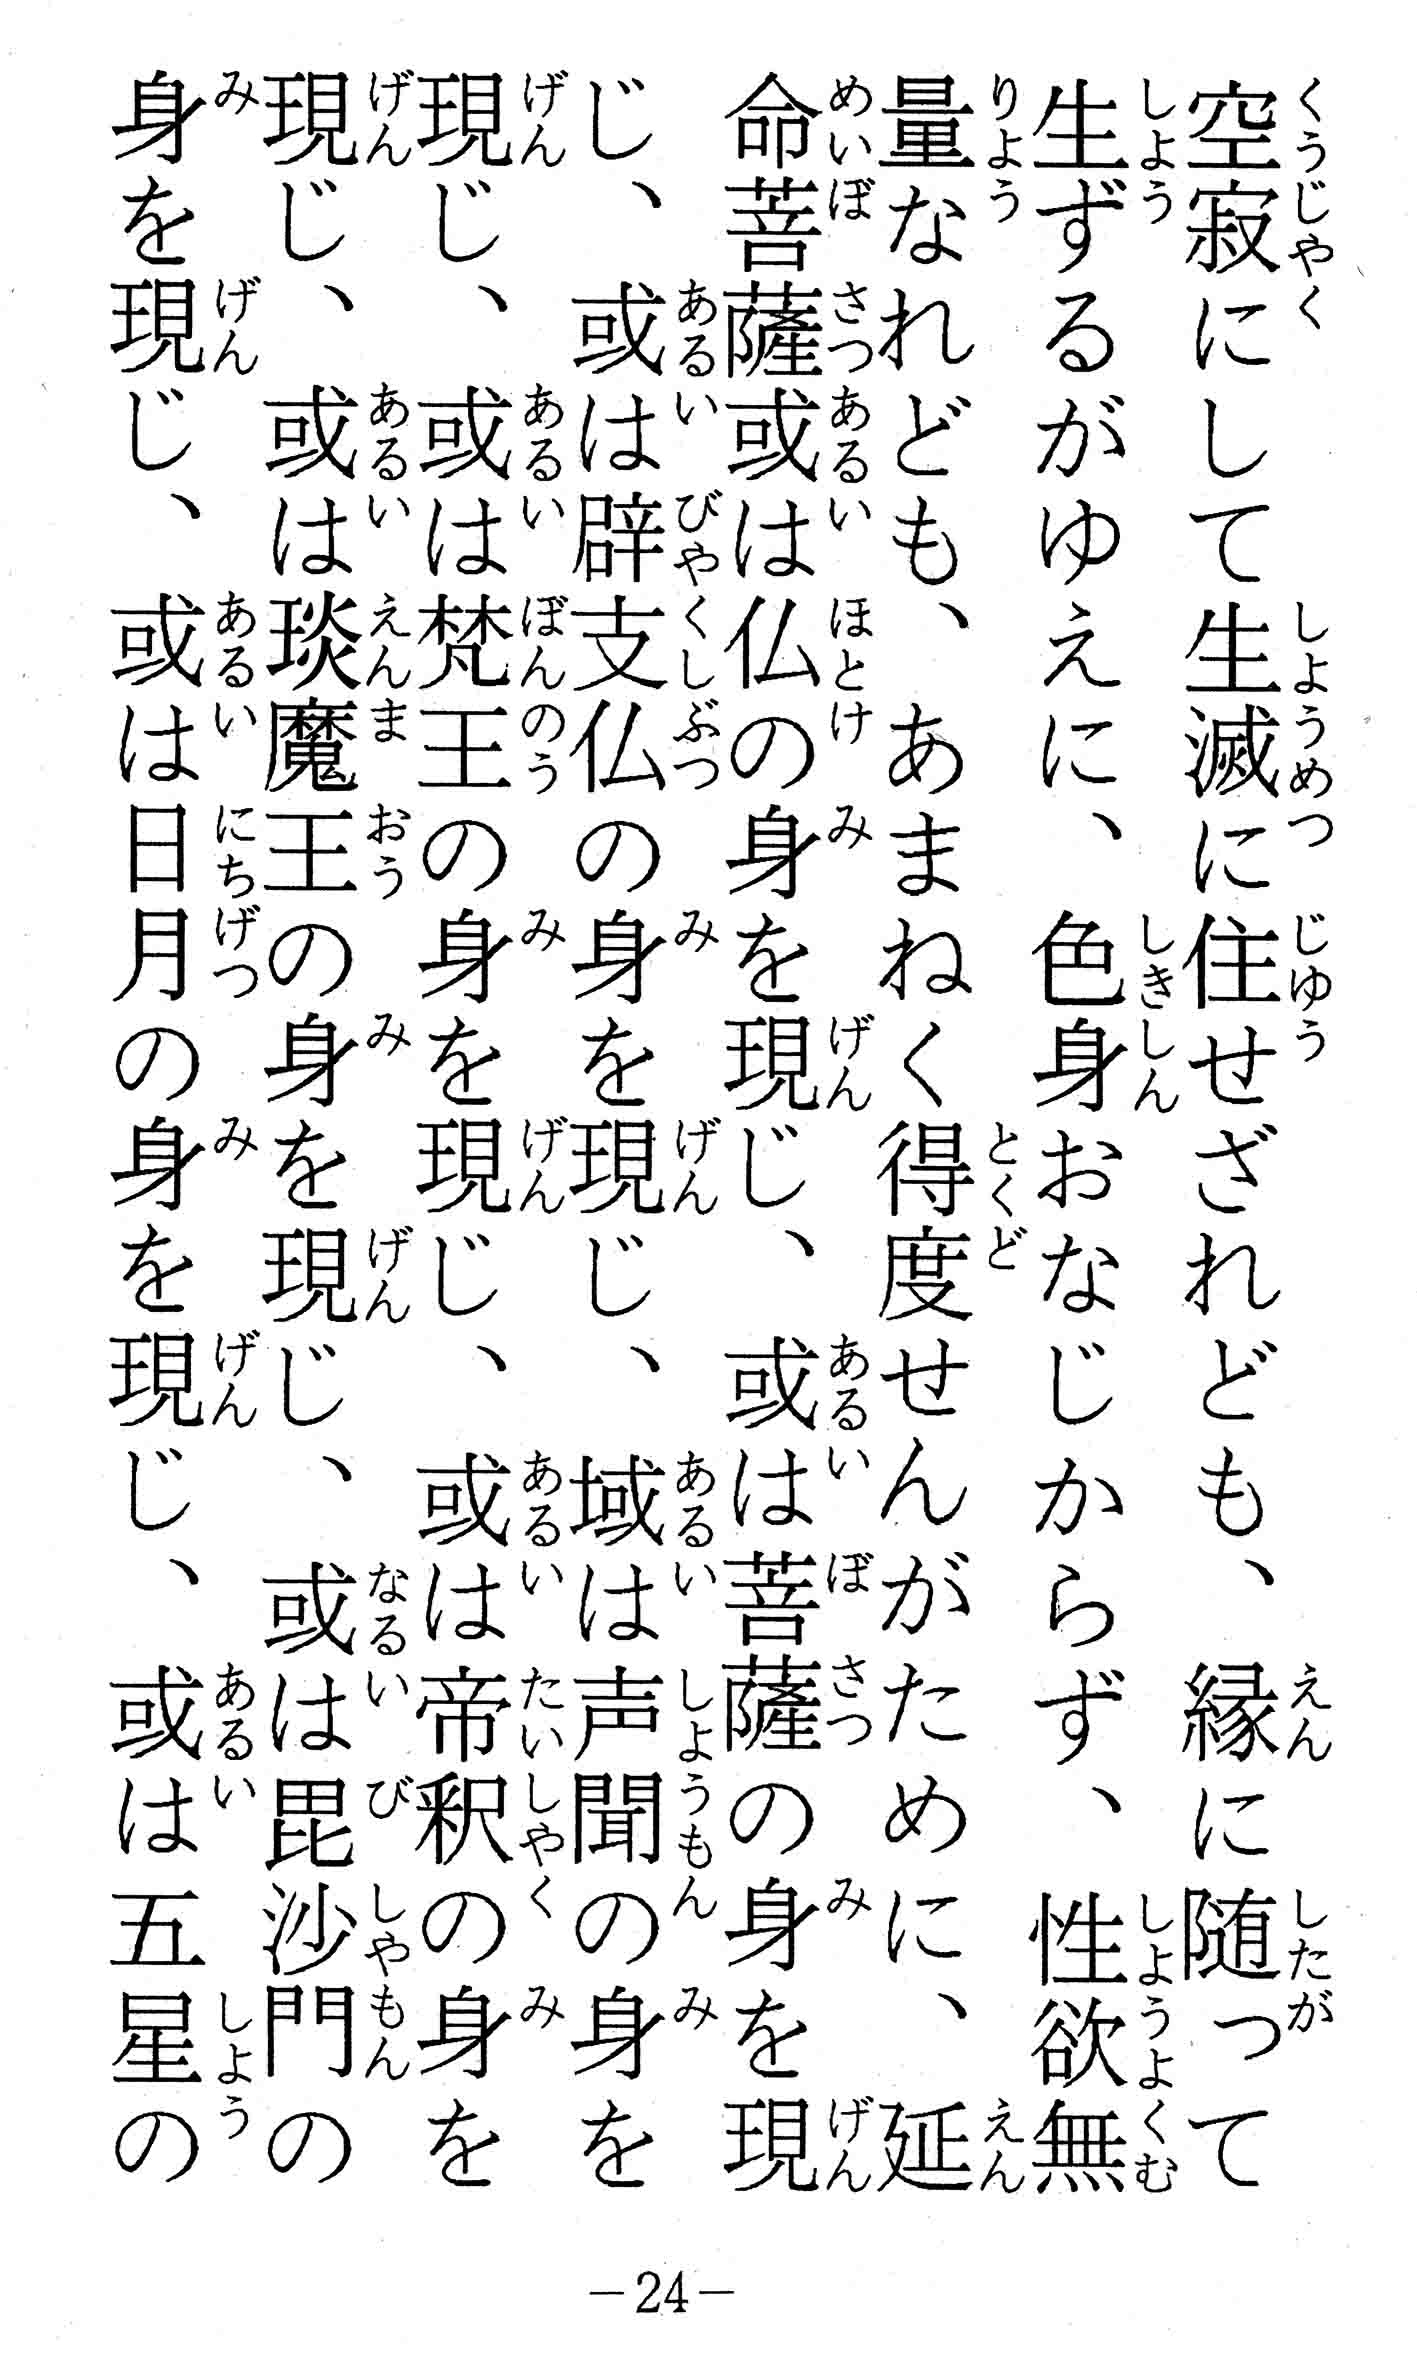 空寂にして生滅に住せざれども、縁に随って
生ずるがゆえに、色身おなじからず、性欲無
量なれども、あまねく得度せんがために、延
命菩薩或は仏の身を現じ、或は菩薩の身を現
じ、或は辟支仏の身を現じ、域は声聞の身を
現じ、或は梵王の身を現じ、或は帝釈の身を
現じ、或は琰魔王の身を現じ、或は毘沙門の
身を現じ、或は日月の身を現じ、或は五星の
－24－